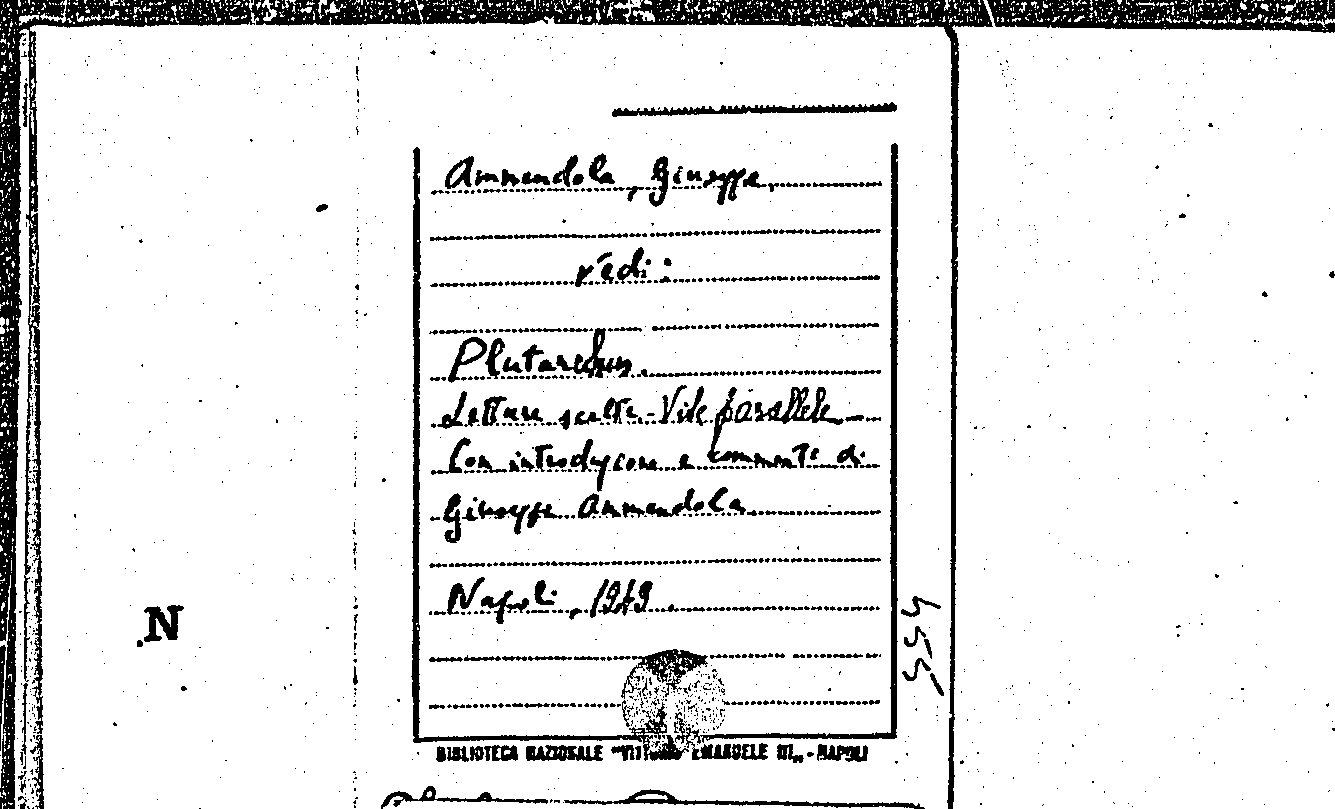 Ammendola, Giuseppe.
vedi:
Plutarchus.
Letture scelte. Vite parallele
Con introduzione e commento di
Giuseppe Ammendola
Napoli, 1949.
N
554
BIBLIOTECA NAZIONALE "VITTORIO EMANUELE III„ - NAPOLI